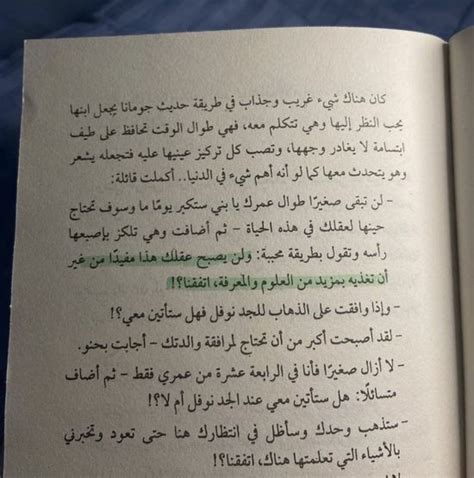 كان هناك شيء غريب وجذاب في طريقة حديث جومانا يجعل ابنها
يحب النظر إليها وهي تتكلم معه، فهي طوال الوقت تحافظ على طيف
ابتسامة لا يغادر وجهها، وتصب كل تركيز عينيها عليه فتجعله يشعر
وهو يتحدث معها كما لو أنه أهم شيء في الدنيا.. أكملت قائلة:
- لن تبقى صغيرًا طوال عمرك يا بني ستكبر يومًا ما وسوف تحتاج
حينها لعقلك في هذه الحياة - ثم أضافت وهي تلكز بإصبعها
رأسه وتقول بطريقة محببة: ولن يصبح عقلك هذا مفيدًا من غير
أن تغذيه بمزيد من العلوم والمعرفة، اتفقنا؟!
- وإذا وافقت على الذهاب للجد نوفل فهل ستأتين معي؟!
- لقد أصبحت أكبر من أن تحتاج لمرافقة والدتك - أجابت بحنو.
- لا أزال صغيرًا فأنا في الرابعة عشرة من عمري فقط - ثم أضاف
متسائلًا: هل ستأتين معي عند الجد نوفل أم لا؟!
- ستذهب وحدك وسأظل في انتظارك هنا حتى تعود وتخبرني
بالأشياء التي تعلمتها هناك، اتفقنا؟!